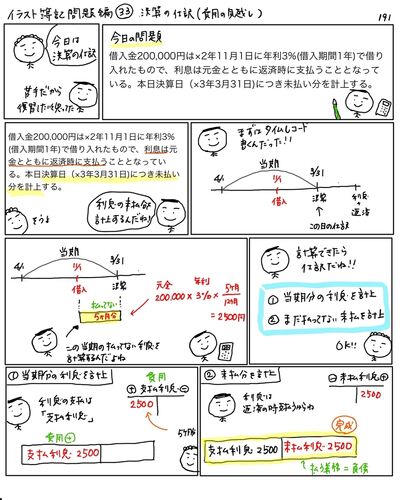 イラスト簿記問題編㉝ 決算の仕訳(費用の見越し)
191
今日は
決算の仕訳
苦手だから
復習したかった
今日の問題
借入金200,000円は×2年11月1日に年利3%(借入期間1年)で借り
入れたもので、利息は元金とともに返済時に支払うこととなって
いる。本日決算日(×3年3月31日)につき未払い分を計上する。
借入金200,000円は×2年11月1日に年利3%
(借入期間1年)で借り入れたもので、利息は元
金とともに返済時に支払うこととなってい
る。本日決算日(×3年3月31日)につき未払い
分を計上する。
利息の未払分を
計上するんだね!
まずはタイムしコード
書くんだった!!
当期
4/1
11/1
借入
3/31
決算
利息
返済
この日の仕訳
当期
4/1
11/1
借入
3/31
決算
払ってない
5ヶ月分
この当期の払ってない利息を
計算するんだよね
元金
年利
200,000 × 3% × 5ヶ月/12ヶ月
= 2500円
計算できたら
仕訳だね!!
① 当期分の利息を計上
② まだ払ってない未払を計上
OK!!
① 当期分の利息を計上
利息の支払は
「支払利息」
費用
⊕ 支払利息 ⊖
2500
費用⊕
支払利息 2500
5ヶ月分
② 未払分を計上
利息は
返済の時払うからね
⊖ 未払利息 ⊕
2500
完成
支払利息 2500
未払利息 2500
払う義務=負債